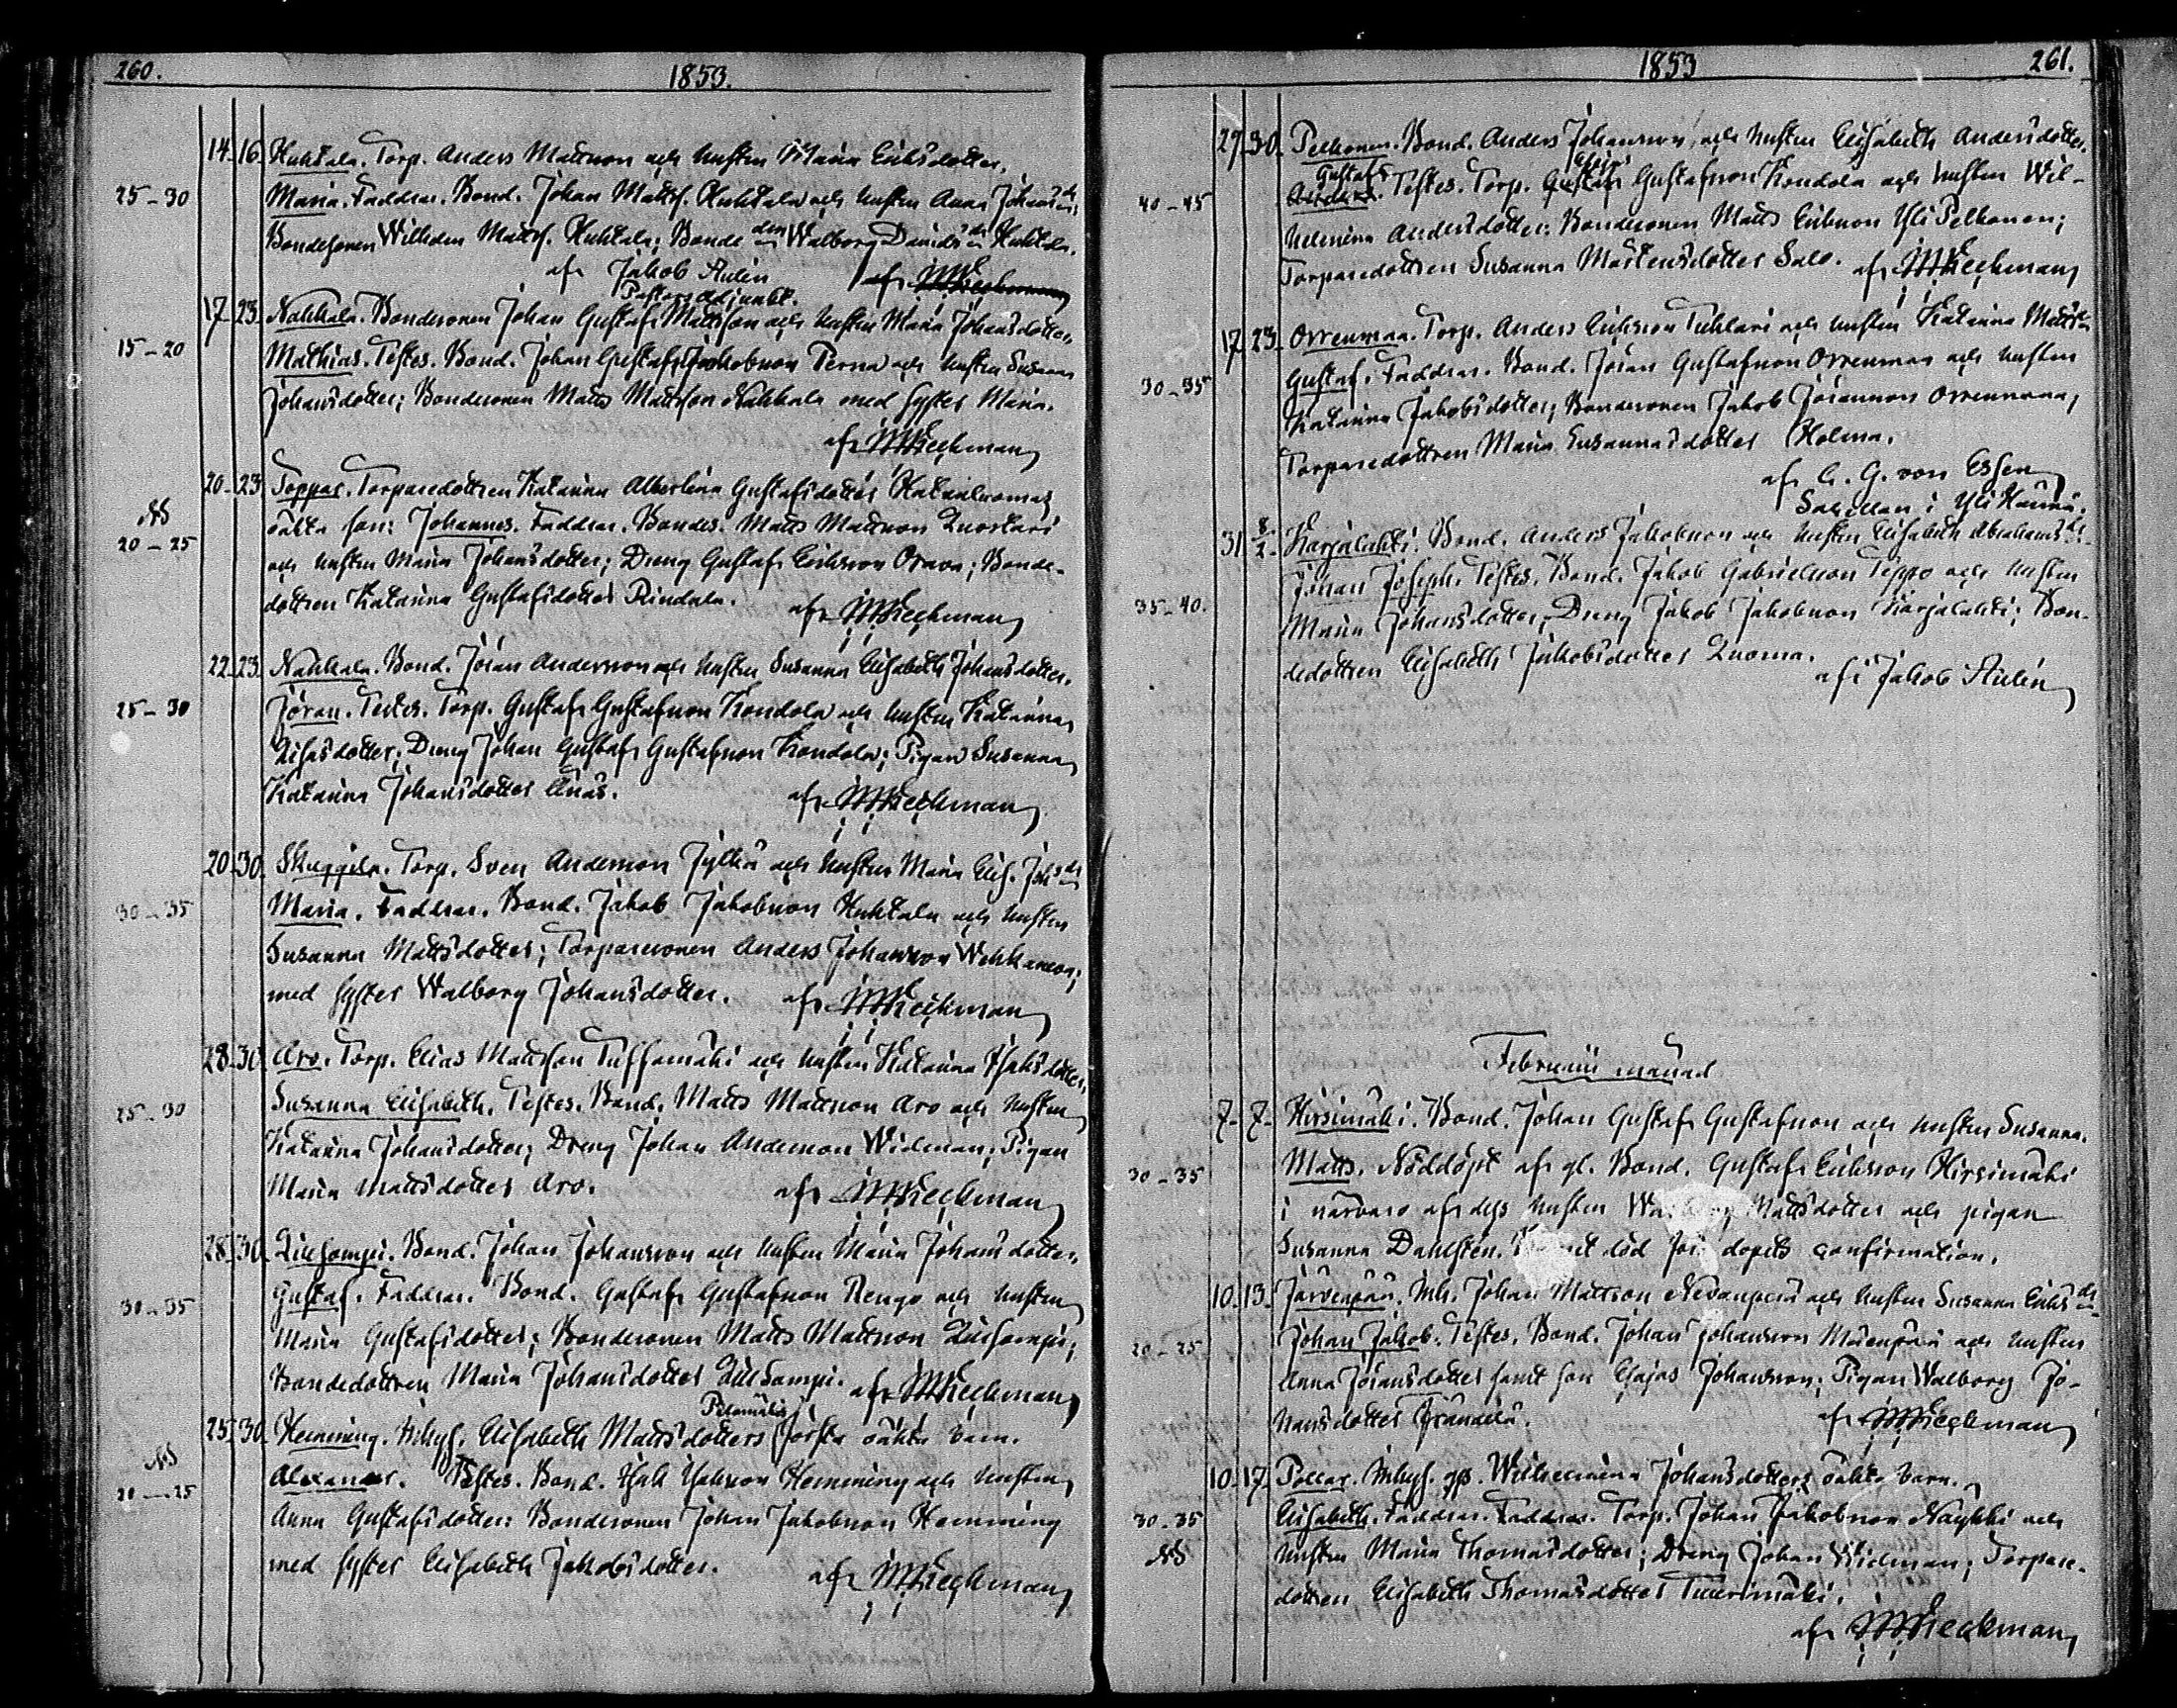 260.
1853.
14. 16. Huhtala. Torp. Anders Mattsson och hustru Maria Eriksdotter.
25-30 Maria. Faddrar. Bond. Johan Matts. Huhtala och hustru Anna Johansdr;
Bondesonen Wilhelm Matts. Huhtala; Bonde dn Walborg Davidsdr Huhtala.
af Jakob Aulin af
Pastors Adjunkt.
17. 23. Nahkala. Bondesonen Johan Gustaf Mattsson och hustru Maria Johansdotter.
15-20 Mathias. Testes. Bond. Johan Gustaf Jakobsson Perna och hustru Susanna
Johansdotter; Bondesonen Matts Mattsson Nahkala med syster Maria.
af
20. 23. Toppar. Torparedottren Katarina Albertina Gustafsdotter
NB
20-25 oäkta son: Johannes. Faddrar. Bondes. Matts Mattsson Luostari
och hustru Maria Johansdotter; Dreng Gustaf Eriksson Orava; Bonde-
dottren Katarina Gustafsdotter Rindala. af
22. 23. Nahkala. Bond. Jöran Andersson och hustru Susanna Elisabeth Johansdotter.
25-30 Jöran. Testes. Torp. Gustaf Gustafsson Kondola och hustru Katarina
Dreng Johan Gustaf Gustafsson Kondola; Pigan Susanna
Katarina Johansdotter Anäs. af
20. 30. Skuggila. Torp. Sven Andersson Jylhä och hustru Maria Elis. Johsdr
30-35 Maria. Faddrar. Bond. Jakob Jakobsson Huhtala och hustru
Susanna Mattsdotter; Torparesonen Anders Johansson Wehkaneva;
med syster Walborg Johansdotter. af
28. 30. Aro. Torp. Elias Mattsson och hustru Katarina Isaksdotter.
25-30 Susanna Elisabeth. Testes. Bond. Matts Mattsson Aro och hustru
Katarina Johansdotter; Dreng Johan Andersson Widman; Pigan
Maria Mattsdotter Aro. af
28. 30. Bond. Johan Johansson och hustru Maria Johansdotter.
30-35 Gustaf. Faddrar. Bond. Gustaf Gustafsson Rengo och hustru
Maria Gustafsdotter; Bondesonen Matts Mattsson
Bondedottren Maria Johansdotter af
25. 30. Hemming. Inhys. Elisabeth Mattsdotters första oäkta barn.
NB
20-25 Alexander. Testes. Bond. Isak Isaksson Hemming och hustru
Anna Gustafsdotter: Bondesonen Johan Jakobsson Hemming
med syster Elisabeth Jakobsdotter. af
1853
261.
27. 30. Pelkonen. Bond. Anders Johansson, och hustru Elisabeth Andersdotter.
Gustaf
40-45 Testes. Torp. Gustaf Gustafsson Kondola och hustru Wil-
helmina Andersdotter: Bondesonen Matts Eriksson Yli Pelkonen;
Torparedottren Susanna Mårtensdotter Salo. af
17. 23. Orrenmaa. Torp. Anders Eriksson och hustru Katarina Mattsdr
30-35 Gustaf. Faddrar. Bond. Jöran Gustafsson Orrenmaa och hustru
Katarina Jakobsdotter; Bondesonen Jakob Jöransson Orrenmaa;
Torparedottren Maria Susannasdotter Holma.
af C. G. von Essen
Sacellan i Yli Härmä.
31. 8/2. Karjalahti. Bond. Anders Jakobsson och hustru Elisabeth Abrahamsdr
Johan Joseph. Testes. Bond. Jakob Gabrielsson Teppo och hustru
35-40. Maria Johansdotter, Dreng Jakob Jakobsson Karjalahti; Bon-
dedottren Elisabeth Jakobsdotter Luoma.
af Jakob Aulin
Februarii månad
7. 7. Hirsimäki. Bond. Johan Gustaf Gustafsson och hustru Susanna.
30-35 Matts. Nöddöpt af gl. Bond. Gustaf Eriksson Hirsimäki
i närvaro af dess hustru Mattsdotter och pigan
Susanna Dahlsten. död för dopets confirmation.
10. 13. Järvenpää. Inh. Johan Mattsson Nevanperä och hustru Susanna Eriksdr
20-25 Johan Jakob. Testes. Bond. Johan Johansson och hustru
Anna Jöransdotter samt son Esajas Johansson; Pigan Walborg Jo-
hansdotter Frändilä. af
10. 17. Inhys. qp. Wilhelmina Johansdotters oäkta barn.
30-35 Elisabeth. Faddrar. Faddrar. Torp. Johan Jakobsson Näykki och
NB hustru Maria Thomasdotter; Dreng Johan Widman; Torpare-
dottren Elisabeth Thomasdotter
af